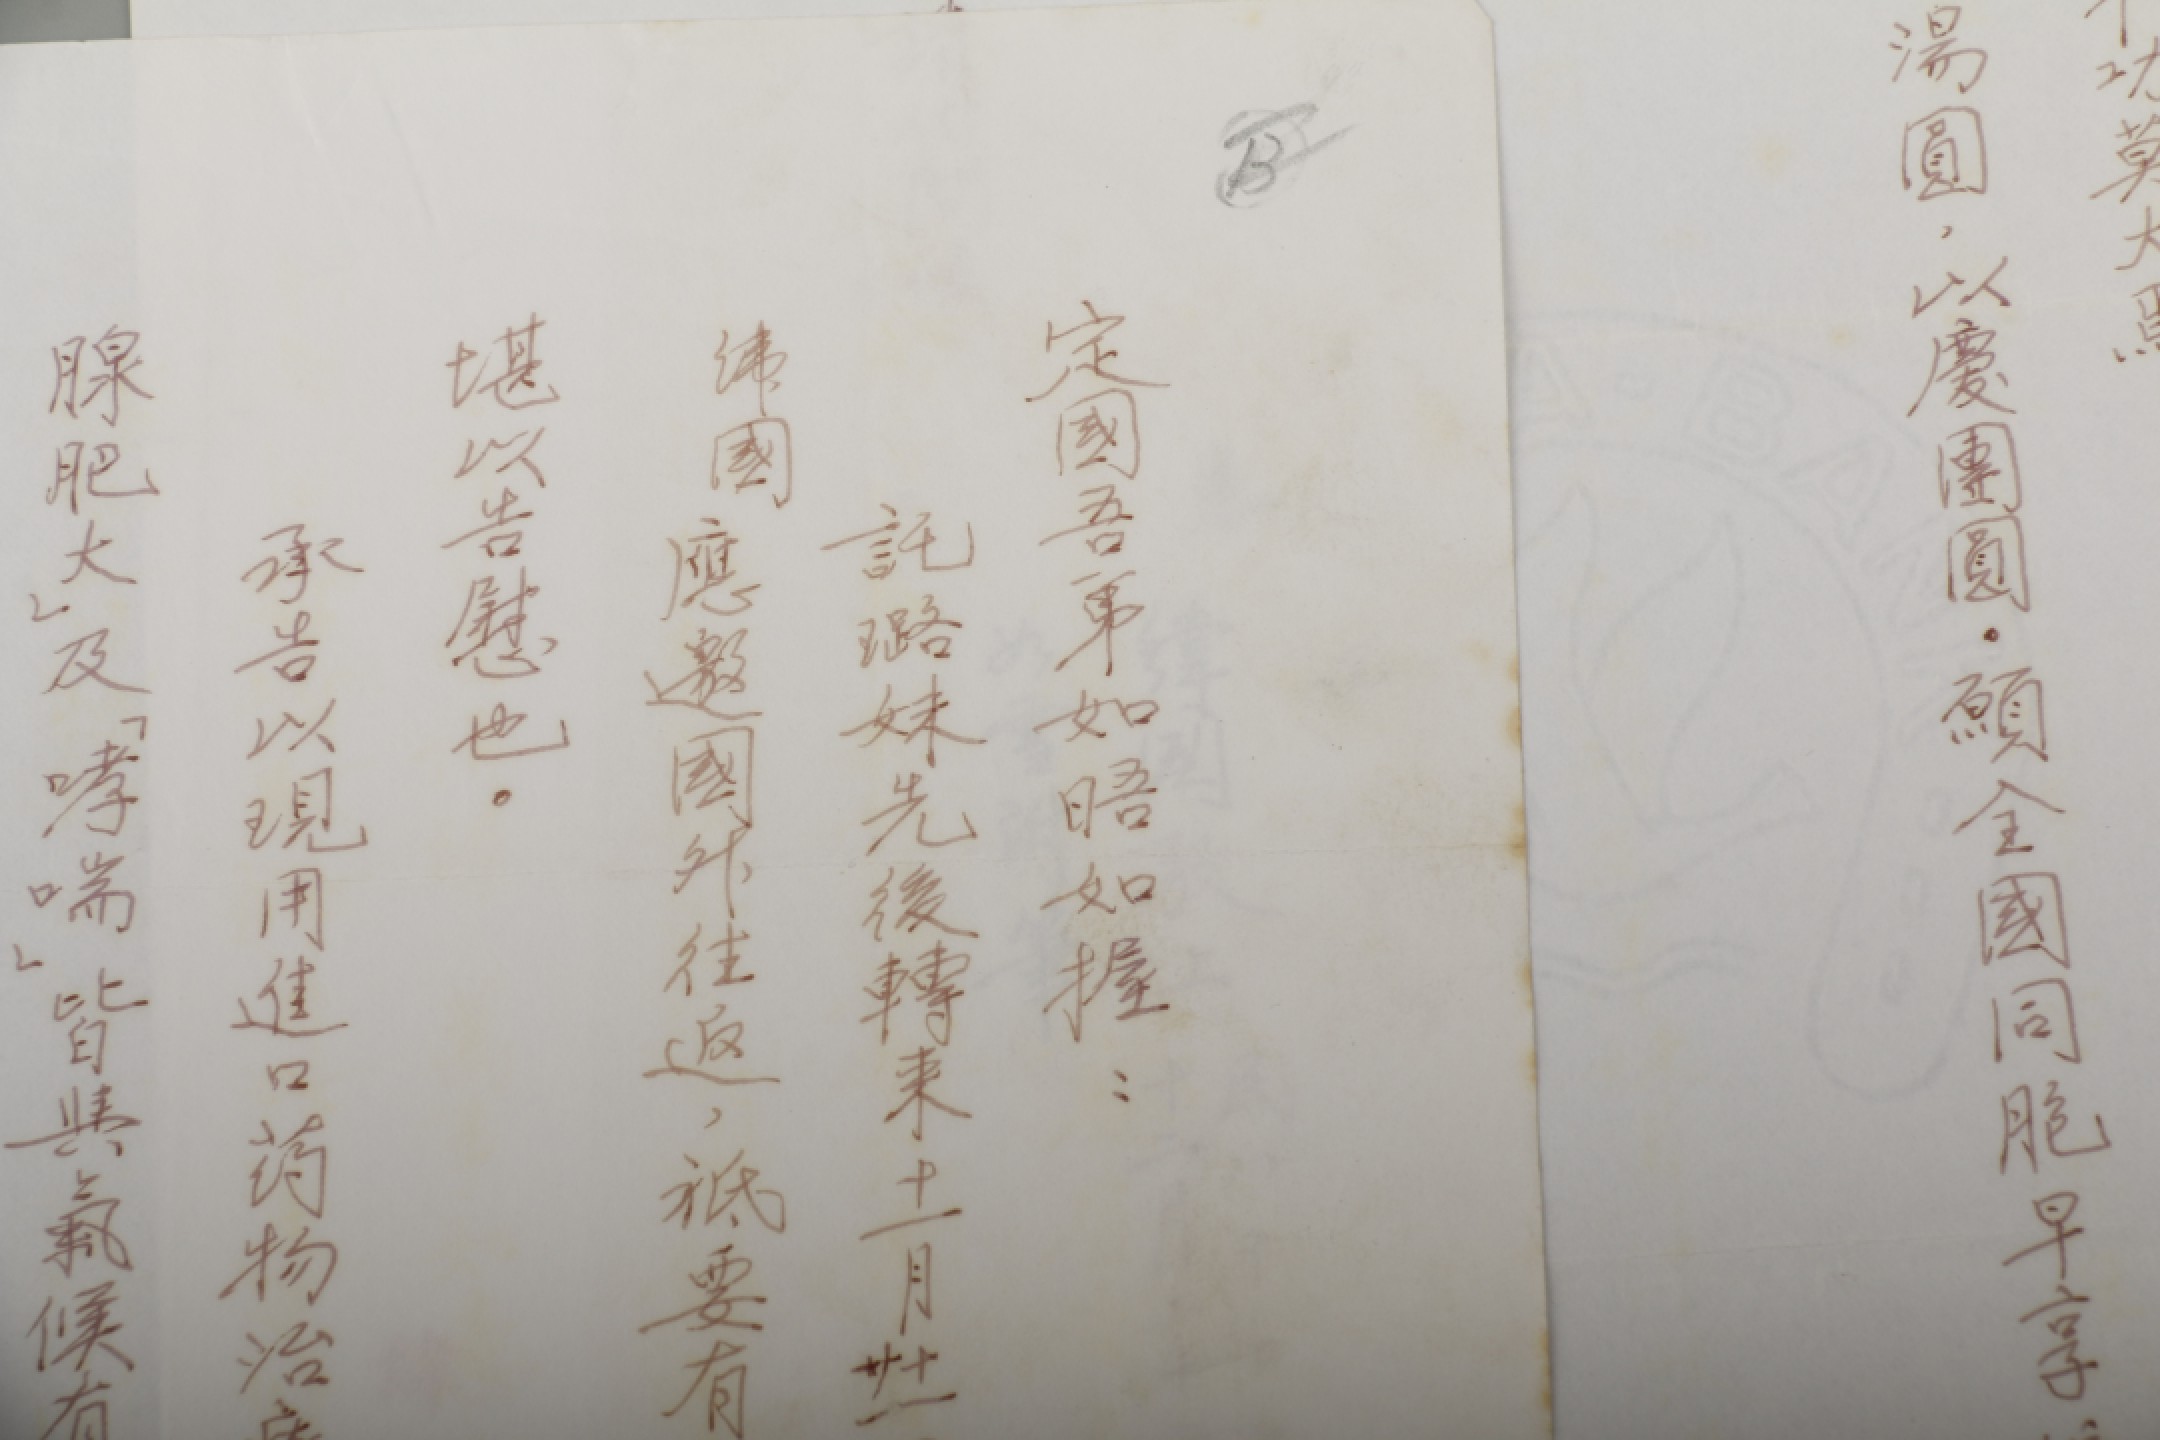 功莫大焉
湯圓，以慶團圓。願全國同胞早享
B
定國吾弟如晤如握：
託璐妹先後轉来十一月廿
緯國應邀國外往返，祗要有
堪以告慰也。
承告以現用進口药物治療
腺肥大」及「哮喘」皆與氣候有